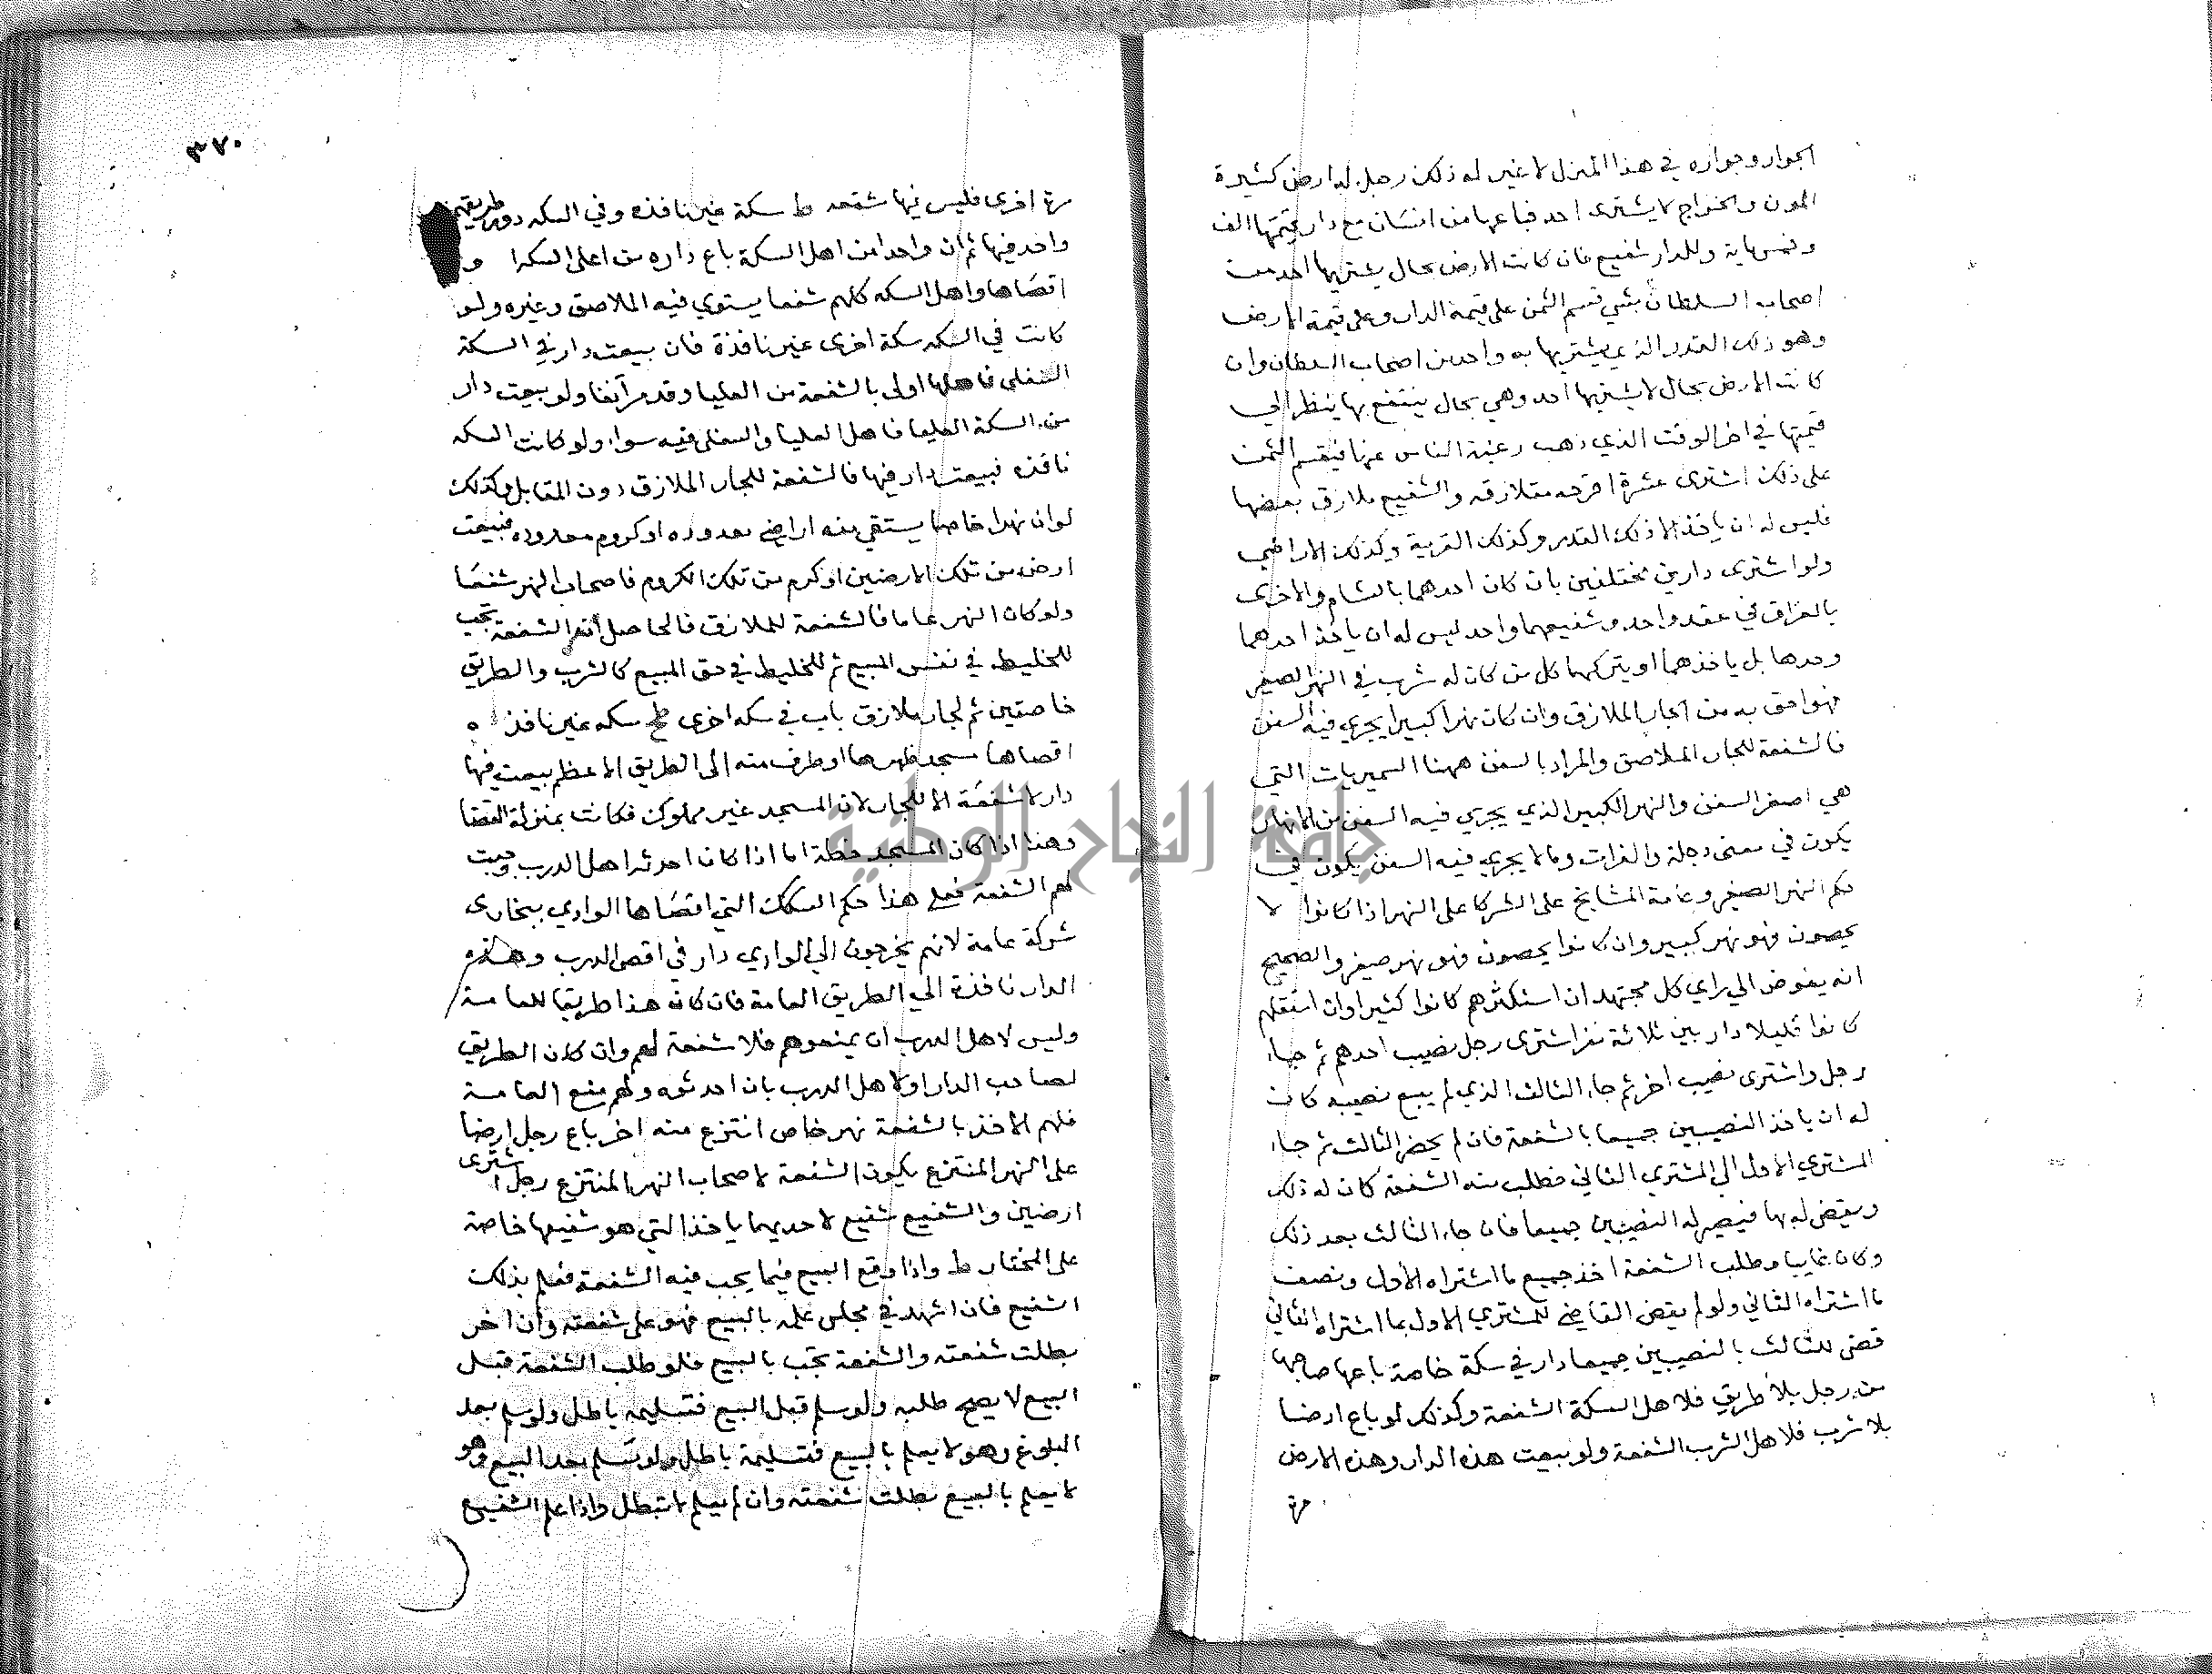 الجوار وجواره في هذا المنزل لا غير له ذلك رجل له ارض كثيرة
المون والخراج لا يشترى احد فباعها من انسان مع دار قيمتها الف
وخمسماية وللدار شفيع فان كانت الارض بحال يشتريها احد من
اصحاب السلطان بشي قسم الثمن على قيمة الدار وعلى قيمة الارض
وهو ذلك القدر الذي يشتريها به واحد من اصحاب السلطان وان
كانت الارض بحال لا يشتريها احد وهي بحال ينتفع بها ينظر الي
قيمتها في اخر الوقت الذي ذهب رغبة الناس عنها فيقسم الثمن
على ذلك اشترى عشرة اقرحه متلازقه والشفيع ملازق بعضها
فليس له ان ياخذ الا ذلك القدر وكذلك القرية وكذلك الاراضي
ولو اشترى دارين مختلفين بان كان احدهما بالشام والاخرى
بالعراق في عقد واحد وشفيعهما واحد ليس له ان ياخذ احدهما
وحدها بل ياخذهما او يتركهما كل من كان له شرب في النهر الصغير
فهو احق به من الجار الملازق وان كان نهرا كبيرا يجري فيه السفن
فالشفعة للجار الملاصق والمراد بالسفن ههنا السميريات التي
هي اصغر السفن والنهر الكبير الذي يجري فيه السفن من الانهار
يكون في معنى دجلة والفرات وما لا يجري فيه السفن يكون في
حكم النهر الصغير وعامة المشايخ على الشركا على النهر اذا كانوا لا
يحصون فهو نهر كبير وان كانوا يحصون فهو نهر صغير والصحيح
انه يفوض الي راي كل مجتهد ان استكثرهم كانوا كثيرا وان استقلهم
كانوا قليلا دار بين ثلاثة نفر اشترى رجل نصيب احدهم ثم جاء
رجل واشترى نصيب اخر ثم جاء الثالث الذي لم يبع نصيبه كان
له ان ياخذ النصيبين جميعا بالشفعة فان لم يحضر الثالث ثم جاء
المشتري الاول الي المشتري الثاني فطلب منه الشفعة كان له ذلك
ويقضى له بها فيصير له النصيبين جميعا فان جاء الثالث بعد ذلك
وكان غايبا وطلب الشفعة اخذ جميع ما اشتراه الاول ونصف
ما اشتراه الثاني ولو لم يقض القاضي للمشتري الاول بما اشتراه الثاني
قضى للثالث بالنصيبين جميعا دار في سكة خاصة باعها صاحبها
من رجل بلا طريق فلاهل السكة الشفعة وكذلك لو باع ارضا
بلا شرب فلاهل الشرب الشفعة ولو بيعت هذه الدار وهذه الارض
مرة
٣٧٠
مرة اخرى فليس فيها شفعه ط سكة غير نافذه وفي السكه دور طريقهم
واحد فيها ثم ان واحدا من اهل السكة باع داره من اعلى السكه او
اقصاها واهل السكه كلهم شفعا يستوي فيه الملاصق وغيره ولو
كانت في السكه سكة اخرى غير نافذة فان بيعت دار في السكة
السفلى فاهلها اولى بالشفعة من العليا وقد مر آنفا ولو بيعت دار
من السكة العليا فاهل العليا والسفلى فيه سواء ولو كانت السكه
نافذه فبيعت دار فيها فالشفعة للجار الملازق دون المقابل وكذلك
لو ان نهرا خاصا يستقي منه اراضي معدوده او كروم معدوده فبيعت
ارض من تلك الارضين او كرم من تلك الكروم فاصحاب النهر شفعا
ولو كان النهر عاما فالشفعة للملازق فالحاصل ان الشفعة تجب
للخليط في نفس المبيع ثم للخليط في حق المبيع كالشرب والطريق
خاصتين ثم لجار ملازق باب في سكه اخرى سكه غير نافذه
اقصاها مسجد ظهرها او طرف منه الى الطريق الاعظم بيعت فيها
دار لا شفعة الا للجار لان المسجد غير مملوك فكانت بمنزلة الفضا
وهذا اذا كان المسجد خطة اما اذا كان احدثه اهل الدرب وجبت
لهم الشفعة فعلى هذا حكم السكك التي اقصاها الوادي ببخارى
شركة عامة لانهم يخرجون الي الوادي دار في اقصى الدرب وهذه
الدار نافذة الي الطريق العامة فان كان هذا طريقا للعامة
وليس لاهل الدرب ان يمنعوهم فلا شفعة لهم وان كان الطريق
لصاحب الدار او لاهل الدرب بان احدثوه ولهم منع العامة
فلهم الاخذ بالشفعة نهر خاص انتزع منه اخر باع رجل ارضا
على النهر المنتزع يكون الشفعة لاصحاب النهر المنتزع رجل اشترى
ارضين والشفيع شفيع لاحديهما ياخذ التي هو شفيعها خاصة
على المختار ط واذا وقع البيع فيما يجب فيه الشفعة فعلم بذلك
الشفيع فان اشهد في مجلس علمه بالبيع فهو على شفعته وان اخر
بطلت شفعته والشفعة تجب بالبيع فلو طلب الشفعة قبل
البيع لا يصح طلبه ولو سلم قبل البيع فتسليمه باطل ولو سلم بعد
البلوغ وهو لا يعلم بالبيع فتسليمه باطل ولو سلم بعد البيع وهو
لا يعلم بالبيع بطلت شفعته وان لم يعلم لا تبطل واذا علم الشفيع
جامعة النجاح الوطنية